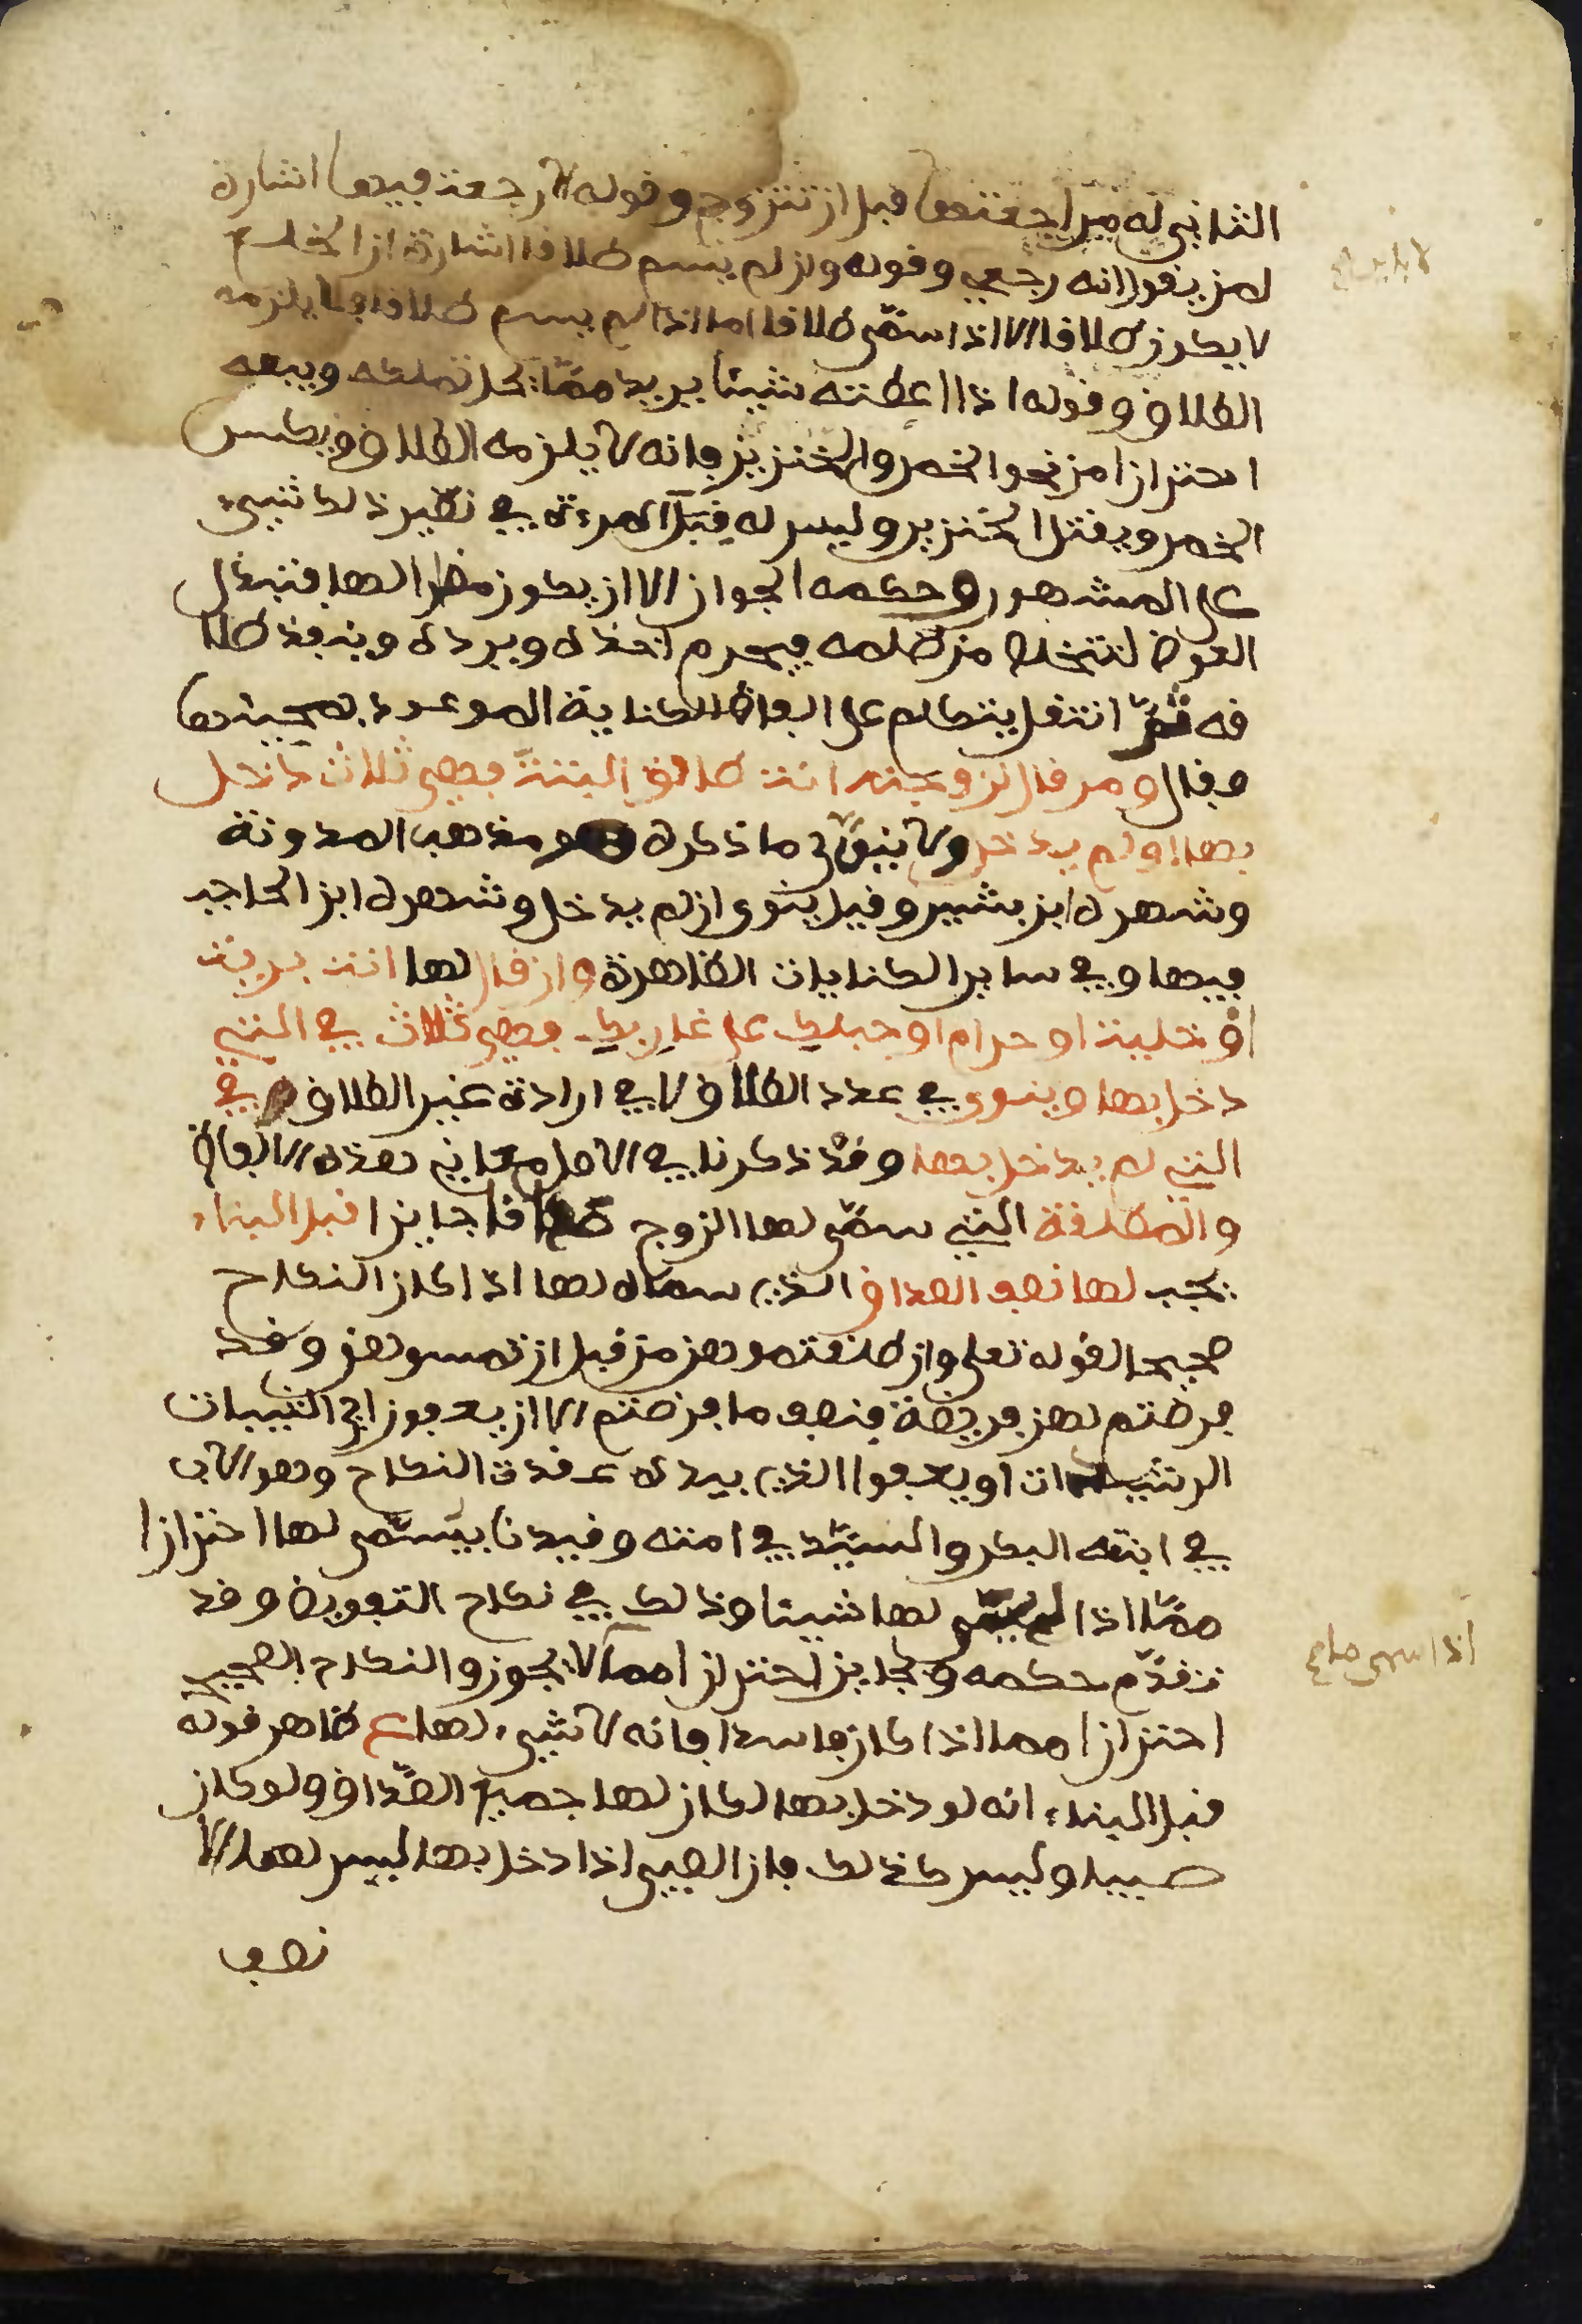 الثاني له مراجعتها قبل ان تتزوج وقوله لا رجعة فيها اشارة
لمن يقول انه رجعي وقوله وان لم يسم طلاقا اشارة ان الخلع
لا يكون طلاقا الا اذا سمّى طلاقا اما اذا لم يسم طلاقا فلا يلزمه
الطلاق وقوله اذا اعطته شيئا يريد ممّا يحل تملكه وبيعه
احترازا من نحو الخمر والخنزير فانه لا يلزمه الطلاق ويكسر
الخمر ويقتل الخنزير وليس له قِبَل المرءة في نظير ذلك شيء
على المشهور وحكمه الجواز الا ان يكون مضرا لها فتبذل
العوض لتتخلص من ظلمه فيحرم اخذه ويرده وينفذ طلا
قه ثمّ انتقل يتكلم على الفاظ الكناية الموعود بمجيئها
فقال ومن قال لزوجته انت طالق البتة فهي ثلاث دخل
بها او لم يدخل ولا ينوّى ما ذكره هو مذهب المدونة
وشهره ابن بشير وقيل ينوى ان لم يدخل وشهره ابن الحاجب
فيها وفي ساير الكنايات الظاهرة وان قال لها انت برية
او خلية او حرام او حبلك على غاربك فهي ثلاث في التي
دخل بها وينوى في عدد الطلاق لا في ارادة غير الطلاق في
التي لم يدخل بها وقد ذكرنا في الاصل معاني هذه الالفاظ
والمطلقة التي سمّى لها الزوج صداقا جايزا قبل البناء
يجب لها نصف الصداق الذي سماه لها اذا كان النكاح
صحيحا لقوله تعلى وان طلقتموهن من قبل ان تمسوهن وقد
فرضتم لهن فريضة فنصف ما فرضتم الا ان يعفون اي الثيبات
الرشيدات او يعفوا الذي بيده عقدة النكاح وهو الاب
في ابنته البكر والسيّد في امته وقيدنا بيسمّى لها احترازا
ممّا اذا لم يسمّى لها شيئا وذلك في نكاح التفويض وقد
تقدّم حكمه وبجايز احترازا مما لا يجوز والنكاح الصحيح
احترازا مما اذا كان فاسدا فانه لا شيء لها ع ظاهر قوله
قبل البناء انه لو دخل بها لكان لها جميع الصّداق ولو كان
صبيا وليس كذلك فان الصبي اذا دخل بها ليس لها الا
نصف